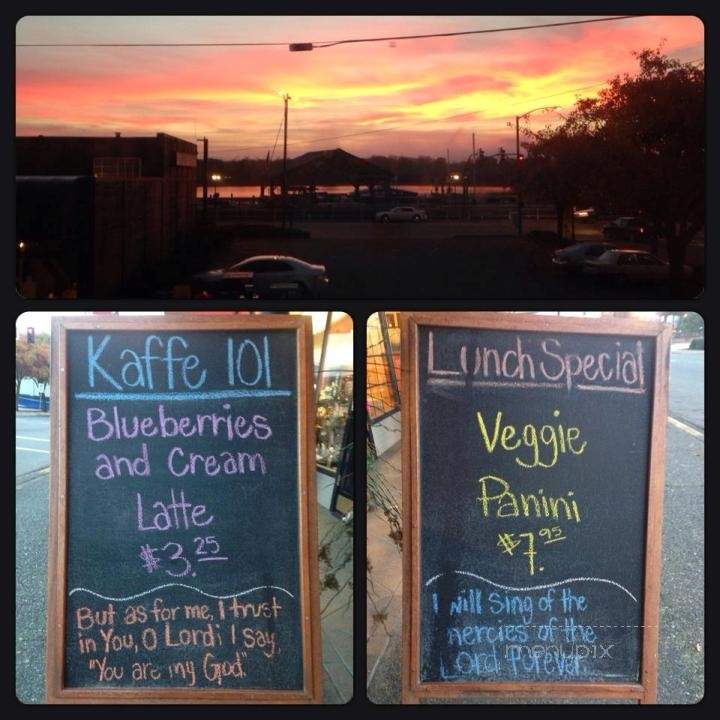 Kaffe 101
Blueberries
and Cream
Latte
$3.25
But as for me, I trust
in You, O Lord; I say,
"You are my God."
Lunch Special
Veggie
Panini
$7.95
I will Sing of the
mercies of the
Lord forever.
menupix